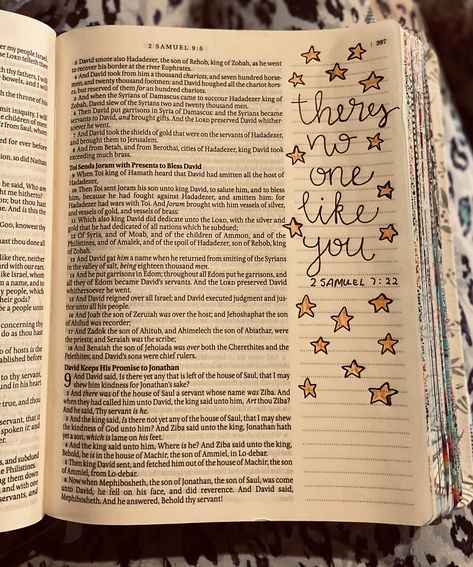 2 SAMUEL 9:6
397
3 David smote also Hadadezer, the son of Rehob, king of Zobah, as he went
to recover his border at the river Euphrates.
4 And David took from him a thousand chariots, and seven hundred horse-
men, and twenty thousand footmen: and David houghed all the chariot hors-
es, but reserved of them for an hundred chariots.
5 And when the Syrians of Damascus came to succour Hadadezer king of
Zobah, David slew of the Syrians two and twenty thousand men.
6 Then David put garrisons in Syria of Damascus: and the Syrians became
servants to David, and brought gifts. And the LORD preserved David whither-
soever he went.
7 And David took the shields of gold that were on the servants of Hadadezer,
and brought them to Jerusalem.
8 And from Betah, and from Berothai, cities of Hadadezer, king David took
exceeding much brass.
Toi Sends Joram with Presents to Bless David
9 When Toi king of Hamath heard that David had smitten all the host of
Hadadezer,
10 Then Toi sent Joram his son unto king David, to salute him, and to bless
him, because he had fought against Hadadezer, and smitten him: for
Hadadezer had wars with Toi. And Joram brought with him vessels of silver,
and vessels of gold, and vessels of brass:
11 Which also king David did dedicate unto the LORD, with the silver and
gold that he had dedicated of all nations which he subdued;
12 Of Syria, and of Moab, and of the children of Ammon, and of the
Philistines, and of Amalek, and of the spoil of Hadadezer, son of Rehob, king
of Zobah.
13 And David gat him a name when he returned from smiting of the Syrians
in the valley of salt, being eighteen thousand men.
14 And he put garrisons in Edom; throughout all Edom put he garrisons, and
all they of Edom became David's servants. And the LORD preserved David
whithersoever he went.
15 And David reigned over all Israel; and David executed judgment and jus-
tice unto all his people.
16 And Joab the son of Zeruiah was over the host; and Jehoshaphat the son
of Ahilud was recorder;
17 And Zadok the son of Ahitub, and Ahimelech the son of Abiathar, were
the priests; and Seraiah was the scribe;
18 And Benaiah the son of Jehoiada was over both the Cherethites and the
Pelethites; and David's sons were chief rulers.
David Keeps His Promise to Jonathan
9 And David said, Is there yet any that is left of the house of Saul, that I may
shew him kindness for Jonathan's sake?
2 And there was of the house of Saul a servant whose name was Ziba. And
when they had called him unto David, the king said unto him, Art thou Ziba?
And he said, Thy servant is he.
3 And the king said, Is there not yet any of the house of Saul, that I may shew
the kindness of God unto him? And Ziba said unto the king, Jonathan hath
yet a son, which is lame on his feet.
4 And the king said unto him, Where is he? And Ziba said unto the king,
Behold, he is in the house of Machir, the son of Ammiel, in Lo-debar.
5 Then king David sent, and fetched him out of the house of Machir, the son
of Ammiel, from Lo-debar.
6 Now when Mephibosheth, the son of Jonathan, the son of Saul, was come
unto David, he fell on his face, and did reverence. And David said,
Mephibosheth. And he answered, Behold thy servant!
theres
no
one
like
you
2 SAMUEL 7:22